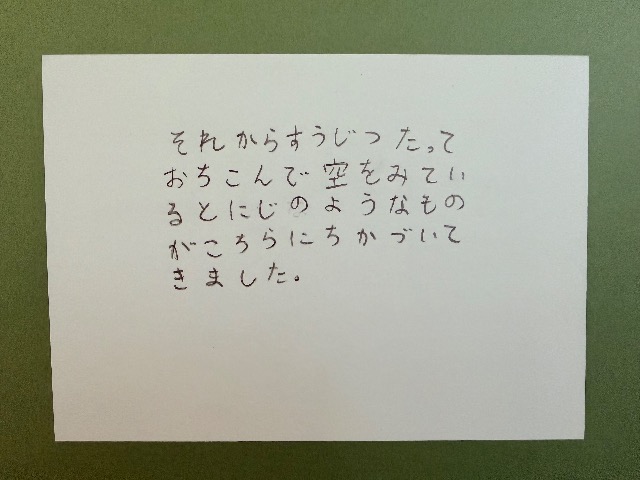 それからすうじつたって
おちこんで空をみてい
るとにじのようなもの
がこちらにちかづいて
きました。